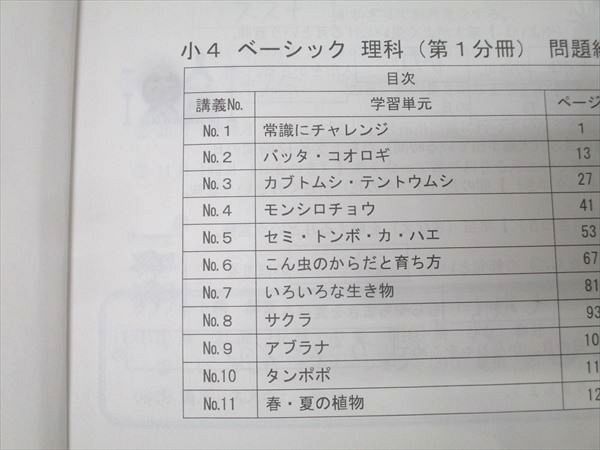 小4 ベーシック 理科（第1分冊） 問題
目次
講義No. 学習単元 ページ
No. 1 常識にチャレンジ 1
No. 2 バッタ・コオロギ 13
No. 3 カブトムシ・テントウムシ 27
No. 4 モンシロチョウ 41
No. 5 セミ・トンボ・カ・ハエ 53
No. 6 こん虫のからだと育ち方 67
No. 7 いろいろな生き物 81
No. 8 サクラ 93
No. 9 アブラナ 10
No.10 タンポポ 11
No.11 春・夏の植物 12